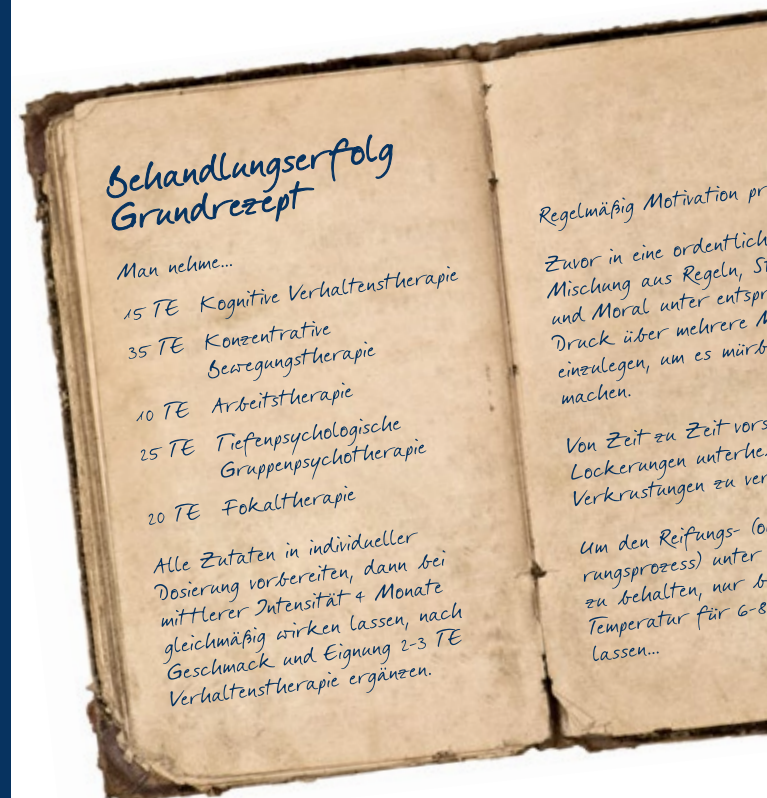 Behandlungserfolg
Grundrezept
Man nehme...
15 TE Kognitive Verhaltenstherapie
35 TE Konzentrative
Bewegungstherapie
10 TE Arbeitstherapie
25 TE Tiefenpsychologische
Gruppenpsychotherapie
20 TE Fokaltherapie
Alle Zutaten in individueller
Dosierung vorbereiten, dann bei
mittlerer Intensität 4 Monate
gleichmäßig wirken lassen, nach
Geschmack und Eignung 2-3 TE
Verhaltenstherapie ergänzen.
Regelmäßig Motivation pr
Zuvor in eine ordentlich
Mischung aus Regeln, St
und Moral unter entspr
Druck über mehrere M
einzulegen, um es mürb
machen.
Von Zeit zu Zeit vors
Lockerungen unterhe
Verkrustungen zu ver
Um den Reifungs- (o
rungsprozess) unter
zu behalten, nur b
Temperatur für 6-8
lassen...